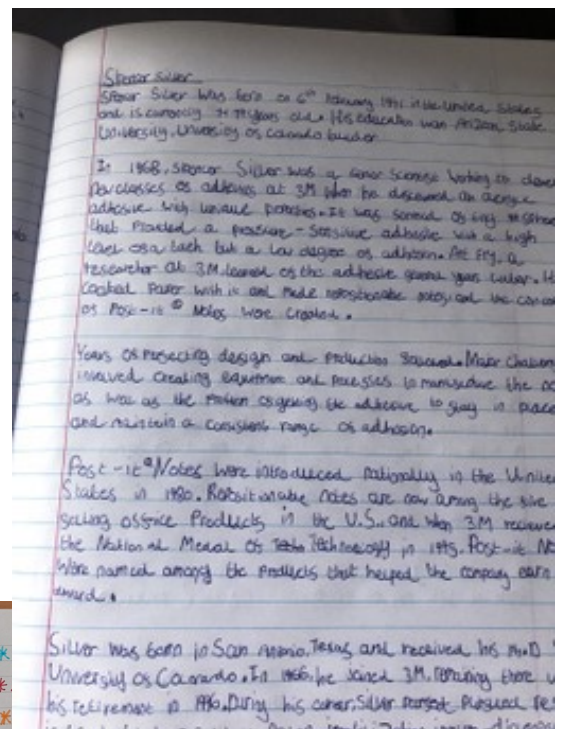 Spencer Silver
Spencer Silver was born on 6th February 1941 in the United States
and is currently 79 years old. His education was Arizona State
University, University os Colorado boulder
In 1968, Spencer Silver was a senior scientist working to develop
new classes os adhesives at 3M when he discovered an acrylic
adhesive with unique properties. It was formed of tiny
that provided a pressure-sensitive adhesive with a high
level os a tack but a low degree os adhesion. Art Fry, a
researcher at 3M learned os the adhesive several years later. He
coated Paper with it and made repositionable notes, and the
os Post-it ® Notes were created.
Years os persecting design and production followed. Major
involved creating equipment and processes to the
as well as the problem os getting the adhesive to stay in place
and maintain a consistent range os adhesion.
Post-it® Notes were introduced nationally in the
States in 1980. Repositionable notes are now among the five
selling ossice Products in the U.S., and when 3M
the National Medal os Technology in 1995. Post-it
were named among the products that helped the company earn
award.
Silver was born in San Antonio, Texas and received his
University os Colorado. In 1966, he joined 3M, remaining there
his retirement in 1996. During his career, Silver pursued